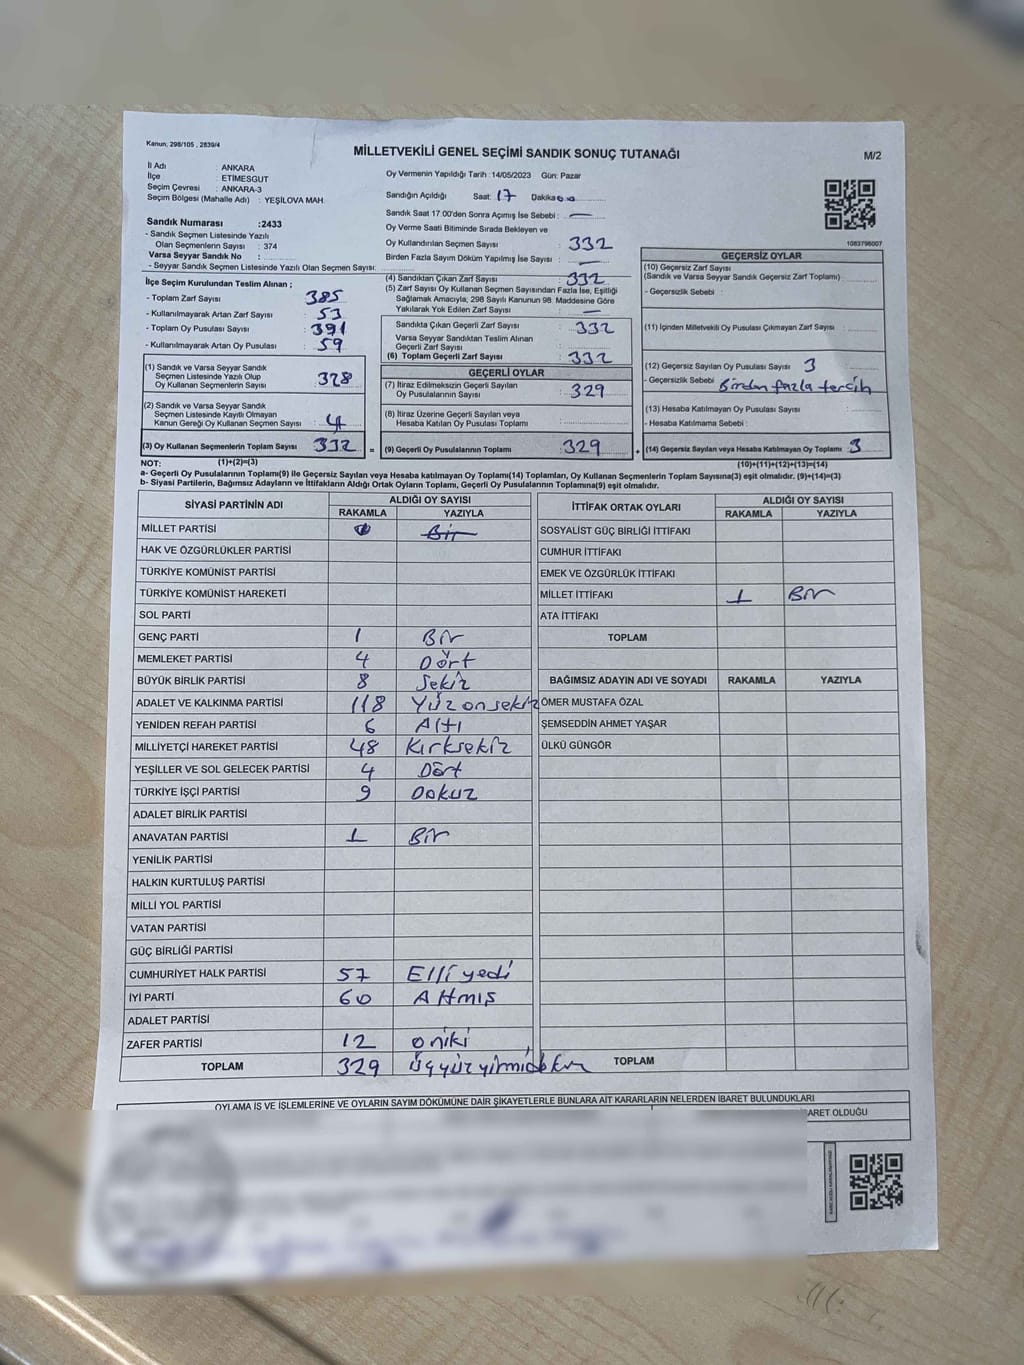 Kanun; 298/105 , 2839/4
MİLLETVEKİLİ GENEL SEÇİMİ SANDIK SONUÇ TUTANAĞI
M/2
İl Adı : ANKARA
İlçe : ETİMESGUT
Seçim Çevresi : ANKARA-3
Seçim Bölgesi (Mahalle Adı) : YEŞİLOVA MAH.
Sandık Numarası :2433
- Sandık Seçmen Listesinde Yazılı
Olan Seçmenlerin Sayısı : 374
Varsa Seyyar Sandık No :
- Seyyar Sandık Seçmen Listesinde Yazılı Olan Seçmen Sayısı:
İlçe Seçim Kurulundan Teslim Alınan ;
- Toplam Zarf Sayısı : 385
- Kullanılmayarak Artan Zarf Sayısı : 53
- Toplam Oy Pusulası Sayısı : 391
- Kullanılmayarak Artan Oy Pusulası : 59
(1) Sandık ve Varsa Seyyar Sandık
Seçmen Listesinde Yazılı Olup
Oy Kullanan Seçmenlerin Sayısı : 328
(2) Sandık ve Varsa Seyyar Sandık
Seçmen Listesinde Kayıtlı Olmayan
Kanun Gereği Oy Kullanan Seçmen Sayısı : 4
(3) Oy Kullanan Seçmenlerin Toplam Sayısı : 332 =
Oy Vermenin Yapıldığı Tarih : 14/05/2023 Gün: Pazar
Sandığın Açıldığı Saat: 17 Dakika: 00
Sandık Saat 17.00'den Sonra Açımış İse Sebebi : —
Oy Verme Saati Bitiminde Sırada Bekleyen ve
Oy Kullandırılan Seçmen Sayısı : 332
Birden Fazla Sayım Döküm Yapılmış İse Sayısı : —
(4) Sandıktan Çıkan Zarf Sayısı : 332
(5) Zarf Sayısı Oy Kullanan Seçmen Sayısından Fazla İse, Eşitliği
Sağlamak Amacıyla, 298 Sayılı Kanunun 98. Maddesine Göre
Yakılarak Yok Edilen Zarf Sayısı : —
Sandıkta Çıkan Geçerli Zarf Sayısı : 332
Varsa Seyyar Sandıktan Teslim Alınan
Geçerli Zarf Sayısı :
(6) Toplam Geçerli Zarf Sayısı : 332
GEÇERLİ OYLAR
(7) İtiraz Edilmeksizin Geçerli Sayılan
Oy Pusulalarının Sayısı : 329
(8) İtiraz Üzerine Geçerli Sayılan veya
Hesaba Katılan Oy Pusulaları Toplamı :
(9) Geçerli Oy Pusulalarının Toplamı : 329 +
1083796007
GEÇERSİZ OYLAR
(10) Geçersiz Zarf Sayısı
(Sandık ve Varsa Seyyar Sandık Geçersiz Zarf Toplamı) :
- Geçersizlik Sebebi :
(11) İçinden Milletvekili Oy Pusulası Çıkmayan Zarf Sayısı :
(12) Geçersiz Sayılan Oy Pusulası Sayısı : 3
- Geçersizlik Sebebi : Birden fazla tercih
(13) Hesaba Katılmayan Oy Pusulası Sayısı :
- Hesaba Katılmama Sebebi :
(14) Geçersiz Sayılan veya Hesaba Katılmayan Oy Toplamı : 3
NOT: (1)+(2)=(3) (10)+(11)+(12)+(13)=(14)
a- Geçerli Oy Pusulalarının Toplamı(9) ile Geçersiz Sayılan veya Hesaba katılmayan Oy Toplamı(14) Toplamları, Oy Kullanan Seçmenlerin Toplam Sayısına(3) eşit olmalıdır. (9)+(14)=(3)
b- Siyasi Partilerin, Bağımsız Adayların ve İttifakların Aldığı Ortak Oyların Toplamı, Geçerli Oy Pusulalarının Toplamına(9) eşit olmalıdır.
SİYASİ PARTİNİN ADI ALDIĞI OY SAYISI
RAKAMLA YAZIYLA
MİLLET PARTİSİ Bir
HAK VE ÖZGÜRLÜKLER PARTİSİ
TÜRKİYE KOMÜNİST PARTİSİ
TÜRKİYE KOMÜNİST HAREKETİ
SOL PARTİ
GENÇ PARTİ 1 Bir
MEMLEKET PARTİSİ 4 Dört
BÜYÜK BİRLİK PARTİSİ 8 Sekiz
ADALET VE KALKINMA PARTİSİ 118 Yüzonsekiz
YENİDEN REFAH PARTİSİ 6 Altı
MİLLİYETÇİ HAREKET PARTİSİ 48 Kırksekiz
YEŞİLLER VE SOL GELECEK PARTİSİ 4 Dört
TÜRKİYE İŞÇİ PARTİSİ 9 Dokuz
ADALET BİRLİK PARTİSİ
ANAVATAN PARTİSİ 1 Bir
YENİLİK PARTİSİ
HALKIN KURTULUŞ PARTİSİ
MİLLİ YOL PARTİSİ
VATAN PARTİSİ
GÜÇ BİRLİĞİ PARTİSİ
CUMHURİYET HALK PARTİSİ 57 Elli yedi
İYİ PARTİ 60 Altmış
ADALET PARTİSİ
ZAFER PARTİSİ 12 oniki
TOPLAM 329 Üçyüzyirmidokuz
İTTİFAK ORTAK OYLARI ALDIĞI OY SAYISI
RAKAMLA YAZIYLA
SOSYALİST GÜÇ BİRLİĞİ İTTİFAKI
CUMHUR İTTİFAKI
EMEK VE ÖZGÜRLÜK İTTİFAKI
MİLLET İTTİFAKI 1 Bir
ATA İTTİFAKI
TOPLAM
BAĞIMSIZ ADAYIN ADI VE SOYADI RAKAMLA YAZIYLA
ÖMER MUSTAFA ÖZAL
ŞEMSEDDİN AHMET YAŞAR
ÜLKÜ GÜNGÖR
TOPLAM
OYLAMA İŞ VE İŞLEMLERİNE VE OYLARIN SAYIM DÖKÜMÜNE DAİR ŞİKAYETLERLE BUNLARA AİT KARARLARIN NELERDEN İBARET BULUNDUKLARI
BARET OLDUĞU